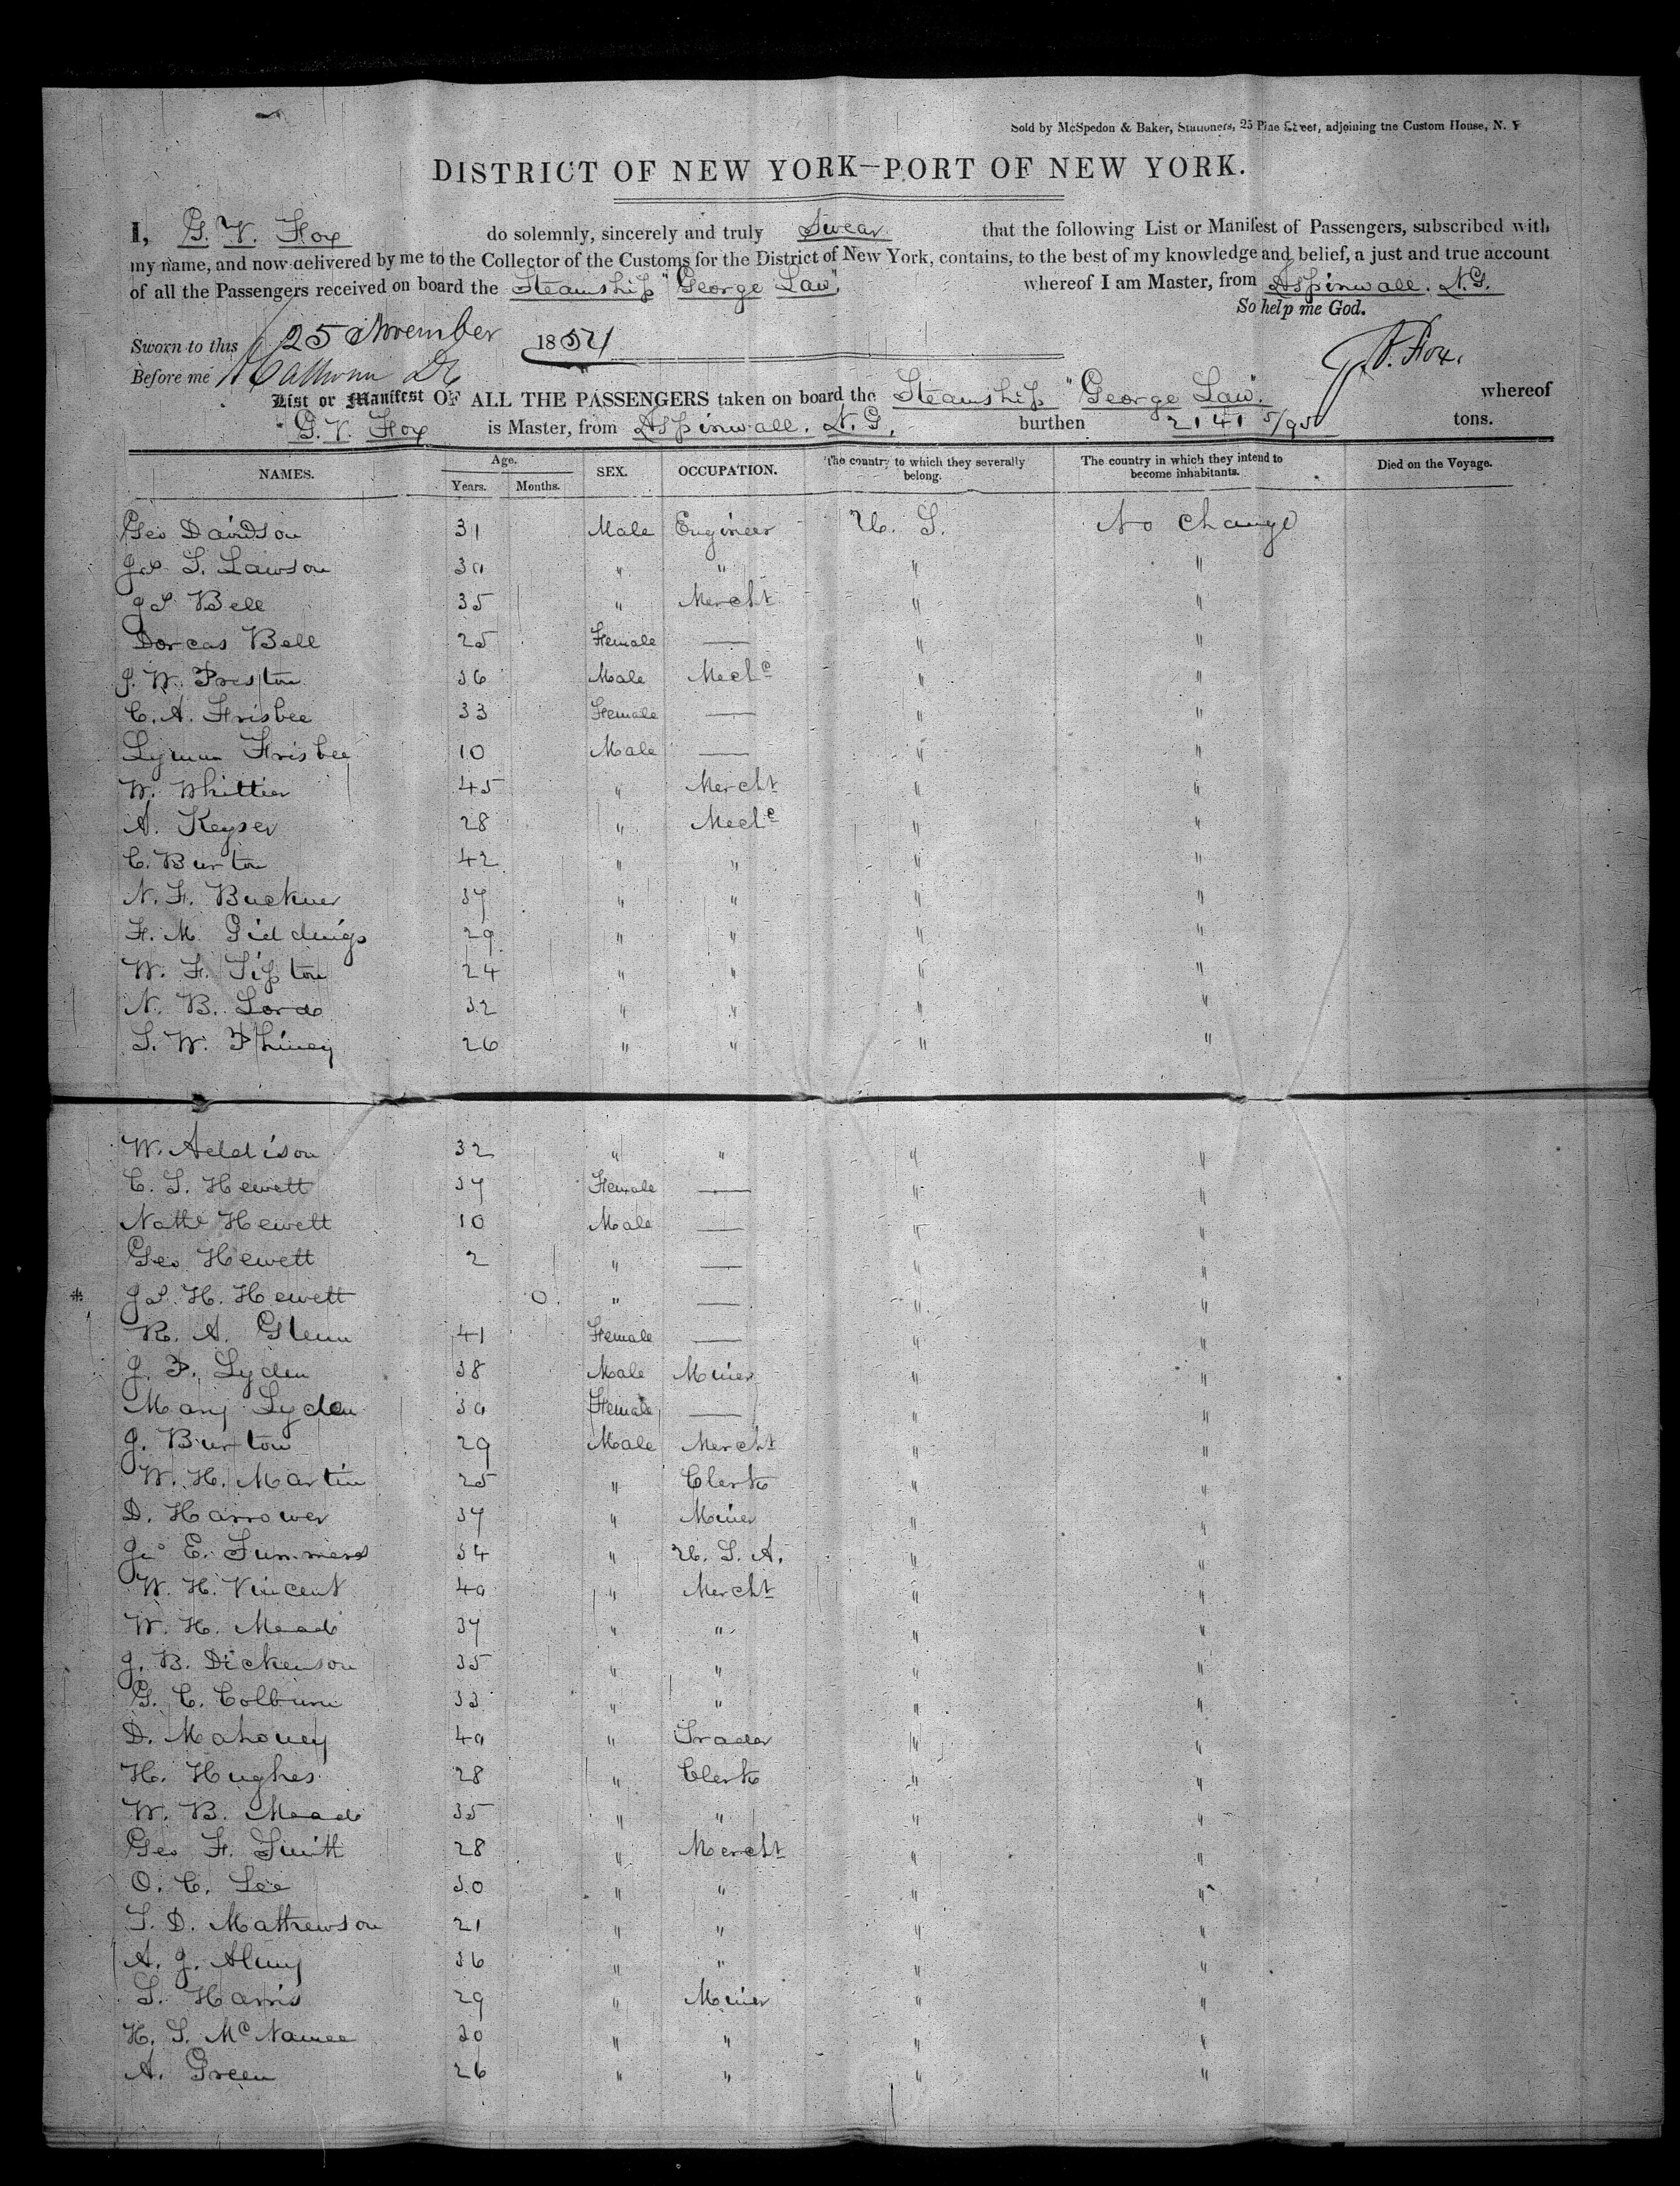 Sold by McSpedon & Baker, Stationers, 25 Pine Street, adjoining the Custom House, N. Y
DISTRICT OF NEW YORK—PORT OF NEW YORK.
I, G. V. Fox do solemnly, sincerely and truly Swear that the following List or Manifest of Passengers, subscribed with
my name, and now delivered by me to the Collector of the Customs for the District of New York, contains, to the best of my knowledge and belief, a just and true account
of all the Passengers received on board the Steamship "George Law", whereof I am Master, from Aspinwall. N.G.
So help me God.
Sworn to this 25 November 1854
Before me Calhoun G. V. Fox.
List or Manifest OF ALL THE PASSENGERS taken on board the Steamship "George Law". whereof
G. V. Fox is Master, from Aspinwall. N. G, burthen 2141 5/95 tons.
NAMES. Age. Years. Months. SEX. OCCUPATION. The country to which they severally belong. The country in which they intend to become inhabitants. Died on the Voyage.
Geo Davidson 31 Male Engineer U. S. No Change
Jas S. Lawson 30 " " " "
Js Bell 35 " Mercht " "
Dorcas Bell 25 Female — " "
J. W. Preston 36 Male Mechc " "
C. A. Frisbee 33 Female — " "
Lyman Frisbee 10 Male — " "
W. Whittier 45 " Mercht " "
A. Keyser 28 " Mechc " "
C. Burton 42 " " " "
N. F. Buckner 37 " " " "
F. M. Giddings 29 " " " "
W. F. Tipton 24 " " " "
N. B. Lord 32 " " " "
S. W. Phiney 26 " " " "
W. Addison 32 " " " "
C. S. Hewett 37 Female — " "
Nathl Hewett 10 Male — " "
Geo Hewett 2 " — " "
* Js. H. Hewett 0. " — " "
R. A. Glenn 41 Female — " "
J. P. Lyden 38 Male Miner " "
Mary Lyden 30 Female — " "
J. Burton 29 Male Mercht " "
W. H. Martin 25 " Clerk " "
D. Harrower 37 " Miner " "
Jno E. Summers 34 " U. S. A. " "
W. H. Vincent 40 " Mercht " "
W. H. Mead 37 " " " "
J. B. Dickenson 35 " " " "
G. C. Colburn 33 " " " "
D. Mahoney 40 " Trader " "
H. Hughes 28 " Clerk " "
W. B. Meade 35 " " " "
Geo F. Smith 28 " Mercht " "
O. C. Lee 30 " " " "
S. D. Mathewson 21 " " " "
A. J. Almy 36 " " " "
S. Harris 29 " Miner " "
H. S. McNamee 30 " " " "
A. Green 26 " " " "